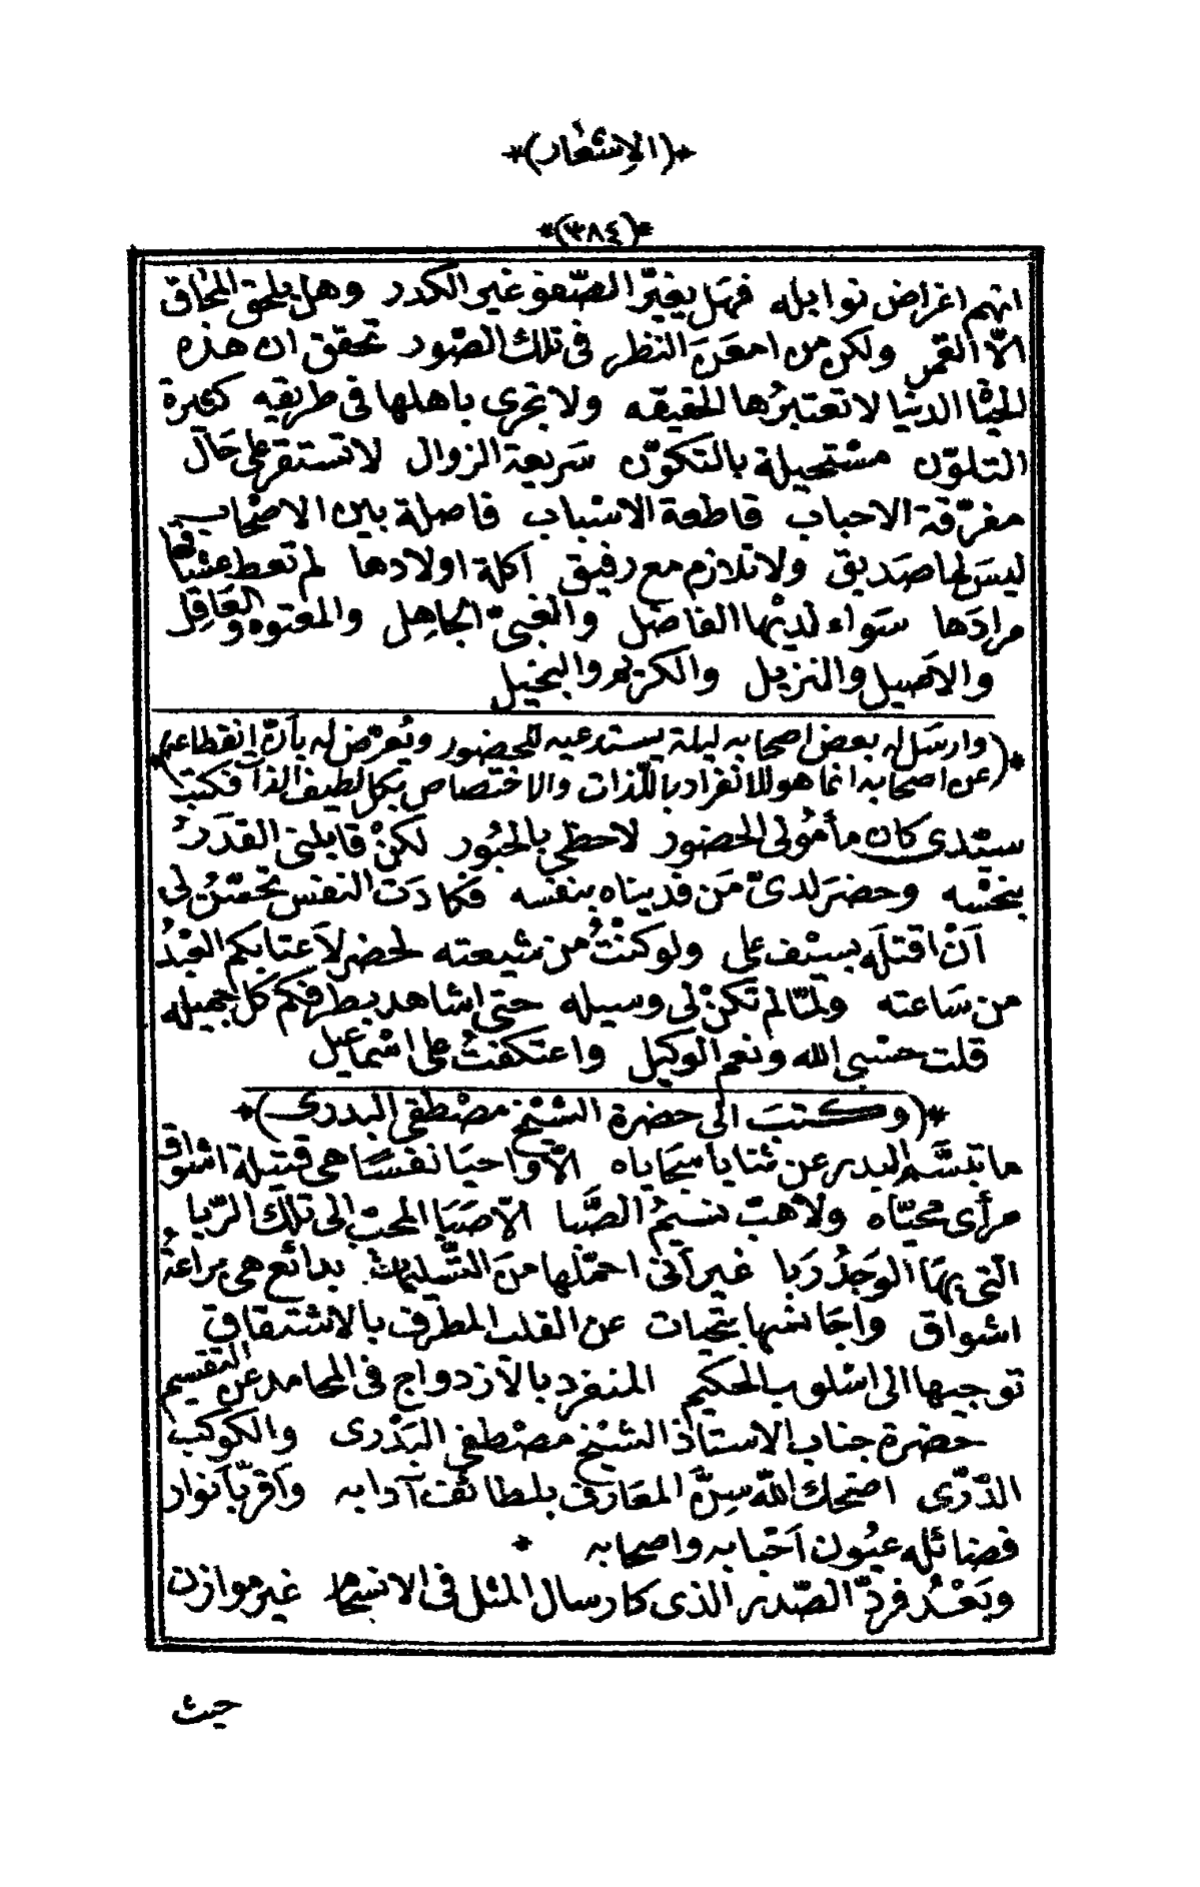 *(الاشعار)*
*(٣٨٤)*
انهم اغراض نوابله فهل يغيّر الصّفو غير الكدر وهل يلحق المحاق
الّا القمر ولكن من امعَنَ النظر فى تلك الصّور تحقق ان هذه
الدنيا لا تعتبرُها الحقيقه ولا تجرى باهلها فى طريقه كثيرة
التلوّن مستحيلة بالتكوّن سَريعة الزوال لا تستقر على حَال
مفرّقة الاحباب قاطعة الاسباب فاصلة بين الاصحاب
ليسَ لها صَديق ولا تلازم مع رفيق آكلة اولادها لم تعط عشاقها
مرادَها سَواء لديها الفاضل والغبىّ الجاهِل والمعتوه والعَاقِل
والاصيل والنزيل والكريم والبخيل
*(وارسَل له بعض اصحابه ليلة يستدعيه للحضور ويُعرّض له بأنّ إنقطاعه
عن اصحابه انما هو للانفراد باللّذات والاختصاص بكل لطيف الذات فكتب)*
سيّدى كان مأمُولى الحضور لاحظى بالحُبور لكنْ قابلنى القدَرُ
بنحسْه وحضرَ لدىّ مَن فديناه بنفسه فكادَت النفس تحسّنُ لى
اَنْ اقتلَه بسيْف على ولو كنْتُ من شيعته لحضر لاَعتابكم العَبْدُ
من سَاعته ولمّا لم تكنْ لى وسيله حتى اشاهد بطرفكم كلّ جميله
قلت حسْبى الله ونعم الوكيل واعتكفتُ على اسْماعيل
*(وكتبَ الى حضرة الشيْخ مصْطفى البدرى)*
ما تبسَّم البدر عن ثنايا سجاياه الّا واحيَا نفسًا هى قتيلة اشواق
مرأى محيّاه ولا هبّ نسيمُ الصَّبا الّا صَبَا المحبّ الى تلك الرّبا
التى بهَا الوجدُ رَبا غير اَنى احمّلها منَ التّسليمات بدائع هى براعةُ
اشواق واجَانسُها بتحيات عن القلب المطرف بالاشتقاق
توجيها الى اسْلوب الحكيم المنفرد بالاَزدواج فى المحامد عن التقسيم
حضرة جناب الاستاذ الشيْخ مصْطفى البَدْرى والكوكب
الدّرّى اضحك الله سِنَّ المعَارف بلطائف آدابه واَقرّ باَنوار
فضائله عيُون اَحبابه واصحابه *
وبَعْدُ فردّ الصّدر الذى كارسال المثل فى الانسجام غير موازن
حيث